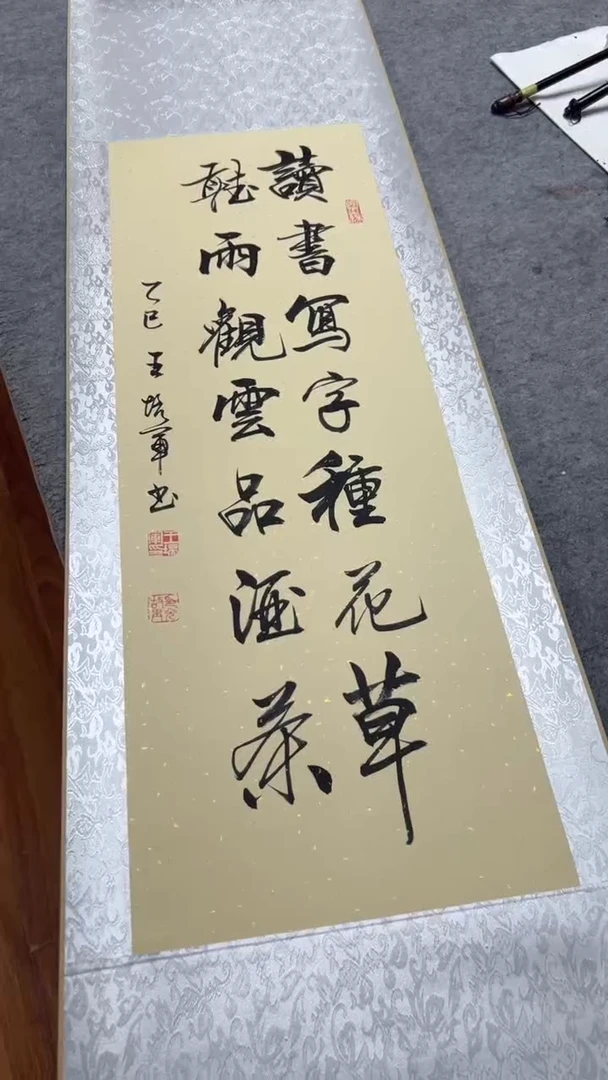 讀書寫字種花草
聽雨觀雲品酒茶
乙巳 王培軍书